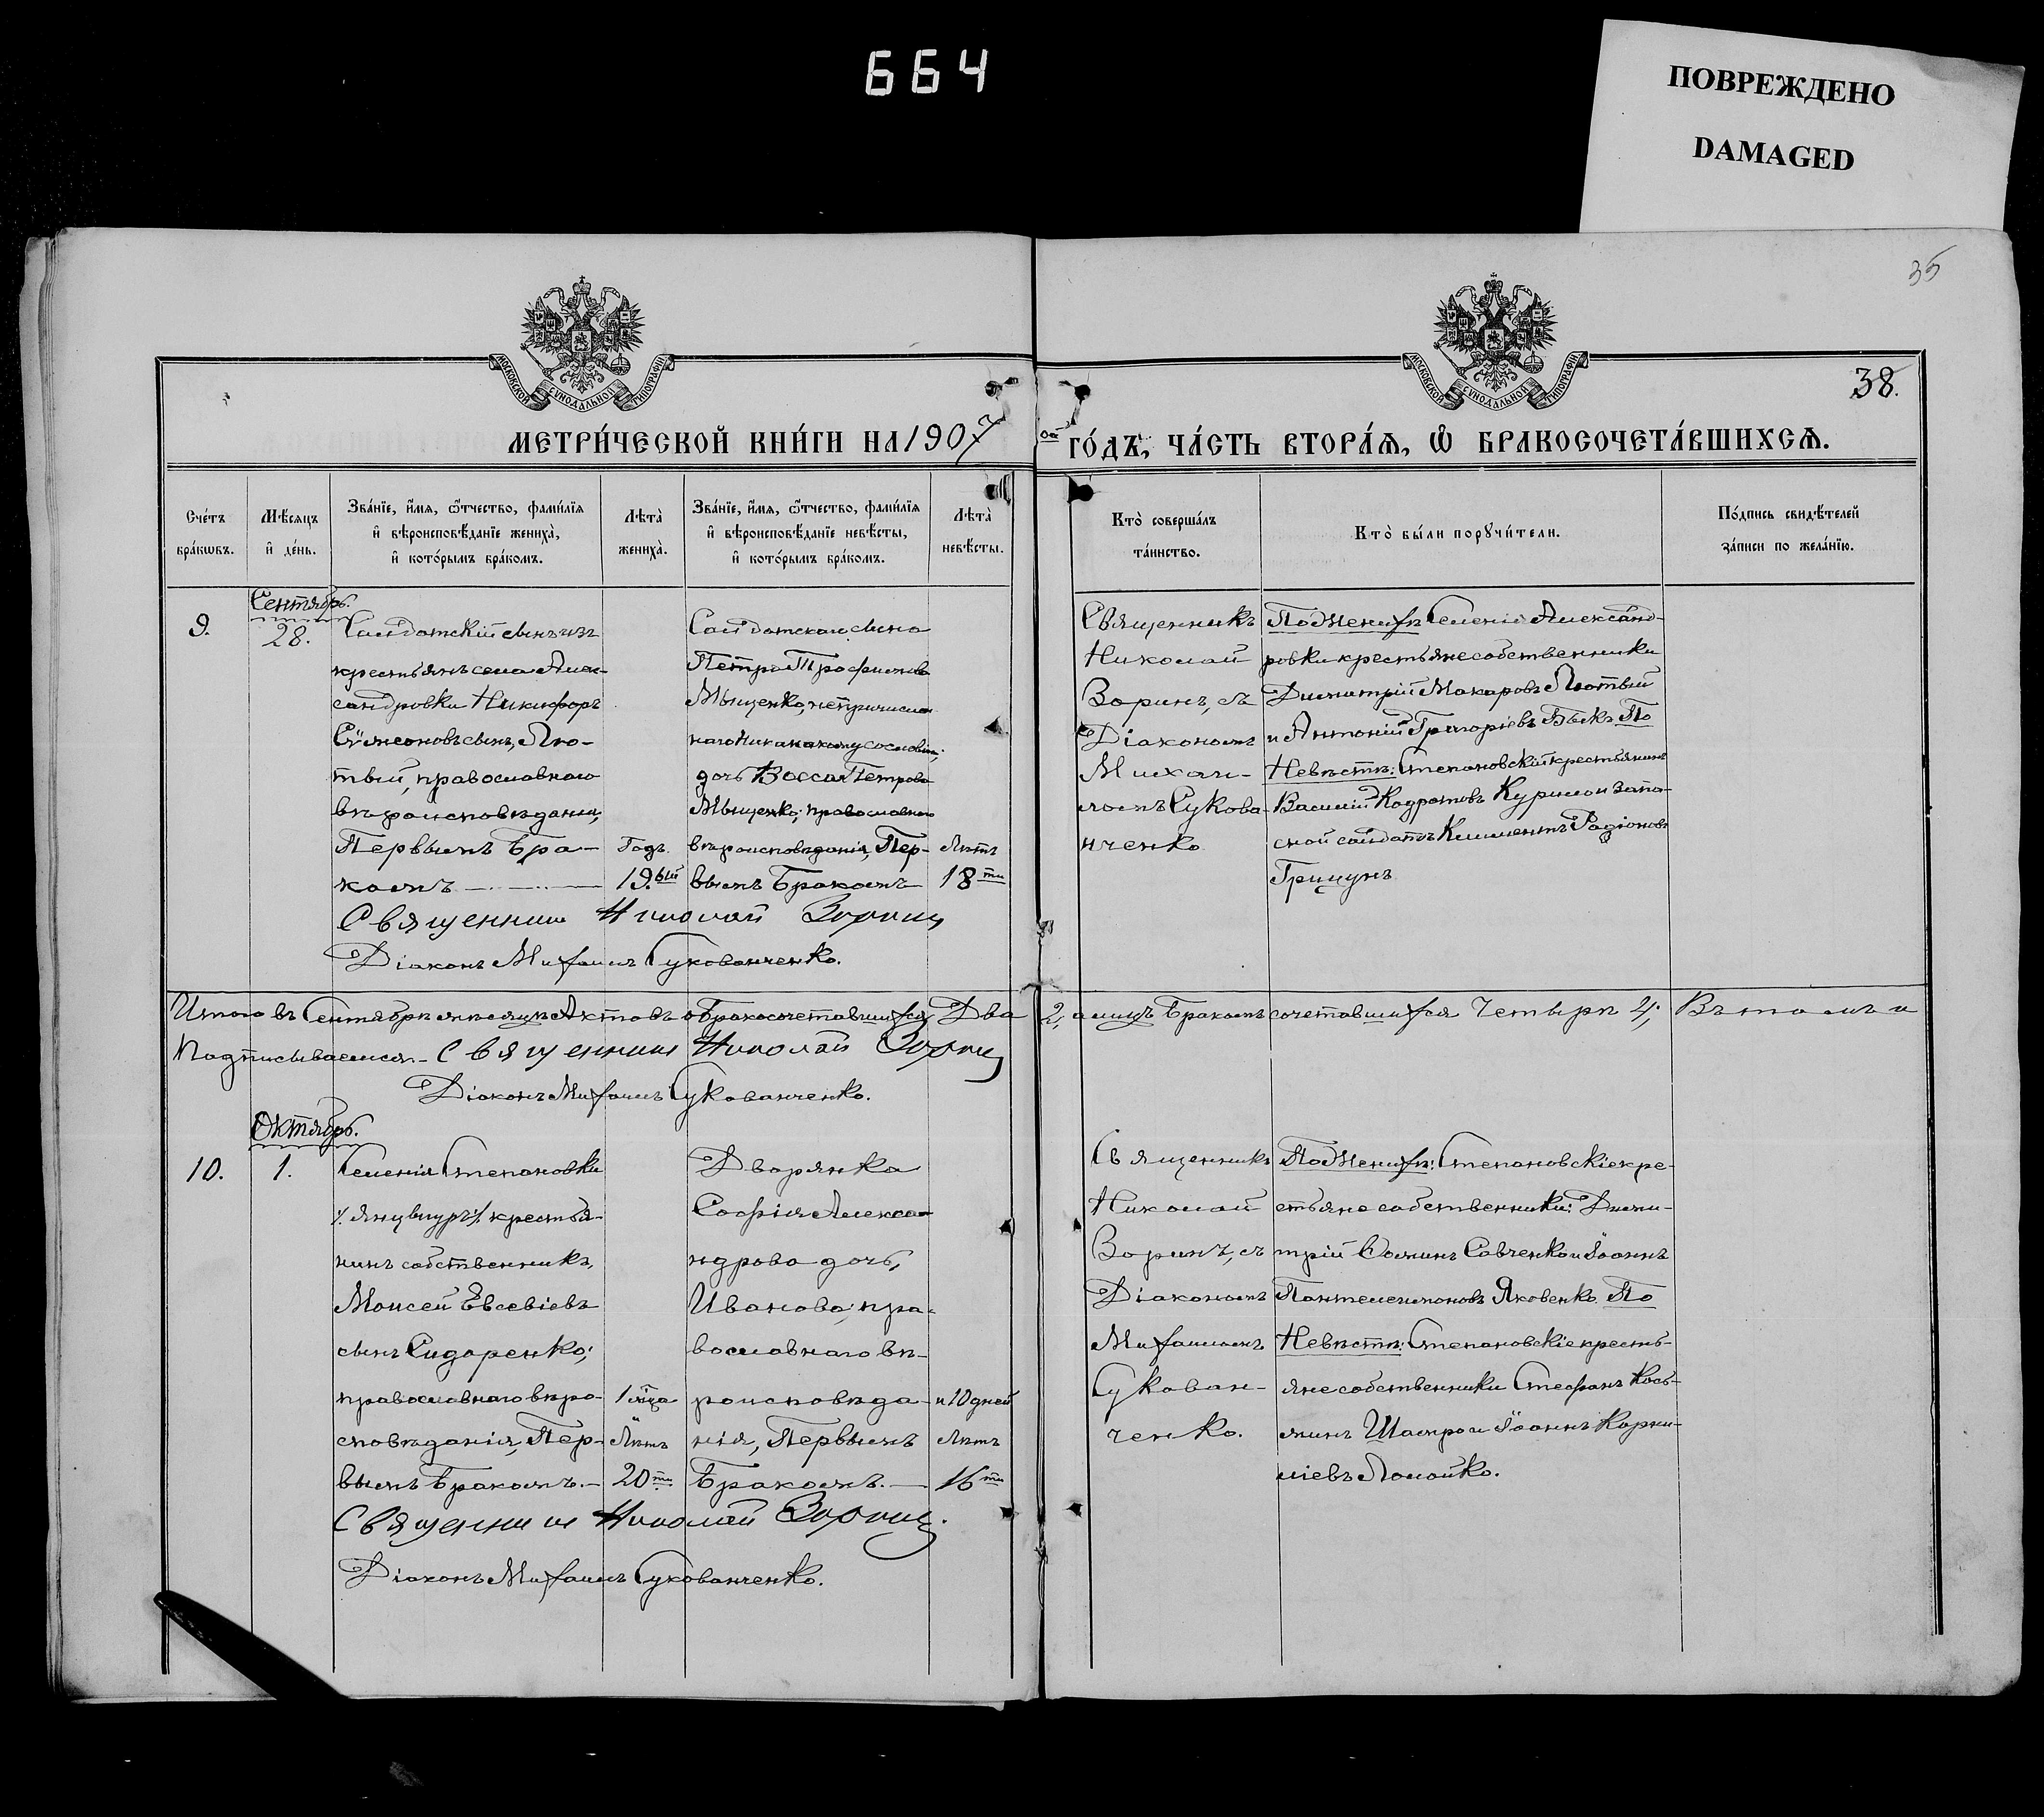 664
ПОВРЕЖДЕНО
DAMAGED
35
38.
МОСКОВСКОЙ СѴНОДАЛЬНОЙ ТИПОГРАФІИ
МОСКОВСКОЙ СѴНОДАЛЬНОЙ ТИПОГРАФІИ
МЕТРИ́ЧЕСКОЙ КНИ́ГИ НА 1907 ой ГО́ДЪ, ЧА́СТЬ ВТОРА́Ѧ, Ѡ҆ БРАКОСОЧЕТА́ВШИХСѦ.
Сче́тъ
бра́кѡвъ.
Мѣ́сяцъ
и҆ де́нь.
Зва́нїе, и҆́мѧ, ѻ҆́тчество, фами́лїѧ
и҆ вѣроисповѣ́данїе жениха̀,
и҆ кото́рымъ бра́комъ.
Лѣта̀
жениха̀.
Зва́нїе, и҆́мѧ, ѻ҆́тчество, фами́лїѧ
и҆ вѣроисповѣ́данїе невѣ́сты,
и҆ кото́рымъ бра́комъ.
Лѣта̀
невѣ́сты.
Кто̀ соверша́лъ
та́инство.
Кто̀ бы́ли порꙋчи́тели.
По́дпись свидѣ́телей
за́писи по жела́нїю.
9.
Сентябрь.
28.
Солдатскій сынъ изъ
крестьянъ села Алек-
сандровки Никифоръ
Сѵмеоновъ сынъ, Лю-
тый, православнаго
вѣроисповѣданія,
Первымъ Бра-
комъ
Годъ.
19.ый
Солдатскаго сына
Петра Трофимова
Мыценко, непричислен
наго ни къ какому сословію;
дочь Васса Петрова
Мыценко; православнаго
вѣроисповѣданія, Пер-
вымъ Бракомъ
Лѣтъ
18ти
Священникъ
Николай
Зоринъ, съ
Діакономъ
Михаи-
ломъ Сукова-
нченко
По Женихѣ Селенія Александ-
ровки крестьяне собственники
Димитрій Макаровъ Лютый
и Антоній Григоріевъ Быкъ По
Невѣстѣ: Степановскій крестьянинъ
Василій Кодратовъ Курило и запа-
сной солдатъ Климентъ Родіоновъ
Священникъ Николай Зоринъ
Діаконъ Михаилъ Сукованченко.
Итого въ Сентябрѣ мѣсяцѣ Актовъ о Бракосочетавшихся Два 2, а лицъ Бракомъ сочетавшихся Четыре 4; Въ томъ и
Подписываемся. Священникъ Николай Зоринъ
Діаконъ Михаилъ Сукованченко.
Октябрь.
10.
1.
Селенія Степановки
крестья-
нинъ собственникъ,
Моисей Евсевіевъ
сынъ Сидоренко;
православнаго вѣро-
сповѣданія, Пер-
вымъ Бракомъ.
1 мѣсяца
Лѣтъ
20ти
Дворянка
Софія Алекса-
ндрова дочь,
Иванова; пра-
вославнаго вѣ-
роисповѣда-
нія, Первымъ
Бракомъ.
и 10 дней
Лѣтъ
16ти
Священникъ
Николай
Зоринъ, съ
Діакономъ
Михаиломъ
Сукован-
ченко.
По Женихѣ: Степановскіе кре-
стьяне собственники: Дими-
трій Ѳоминъ Савченко и Іоаннъ
Пантелеимоновъ Яковенко. По
Невѣстѣ: Степановскіе кресть-
яне собственники Стефанъ Кось-
минъ и Іоаннъ Корни-
ліевъ
Священникъ Николай Зоринъ.
Діаконъ Михаилъ Сукованченко.